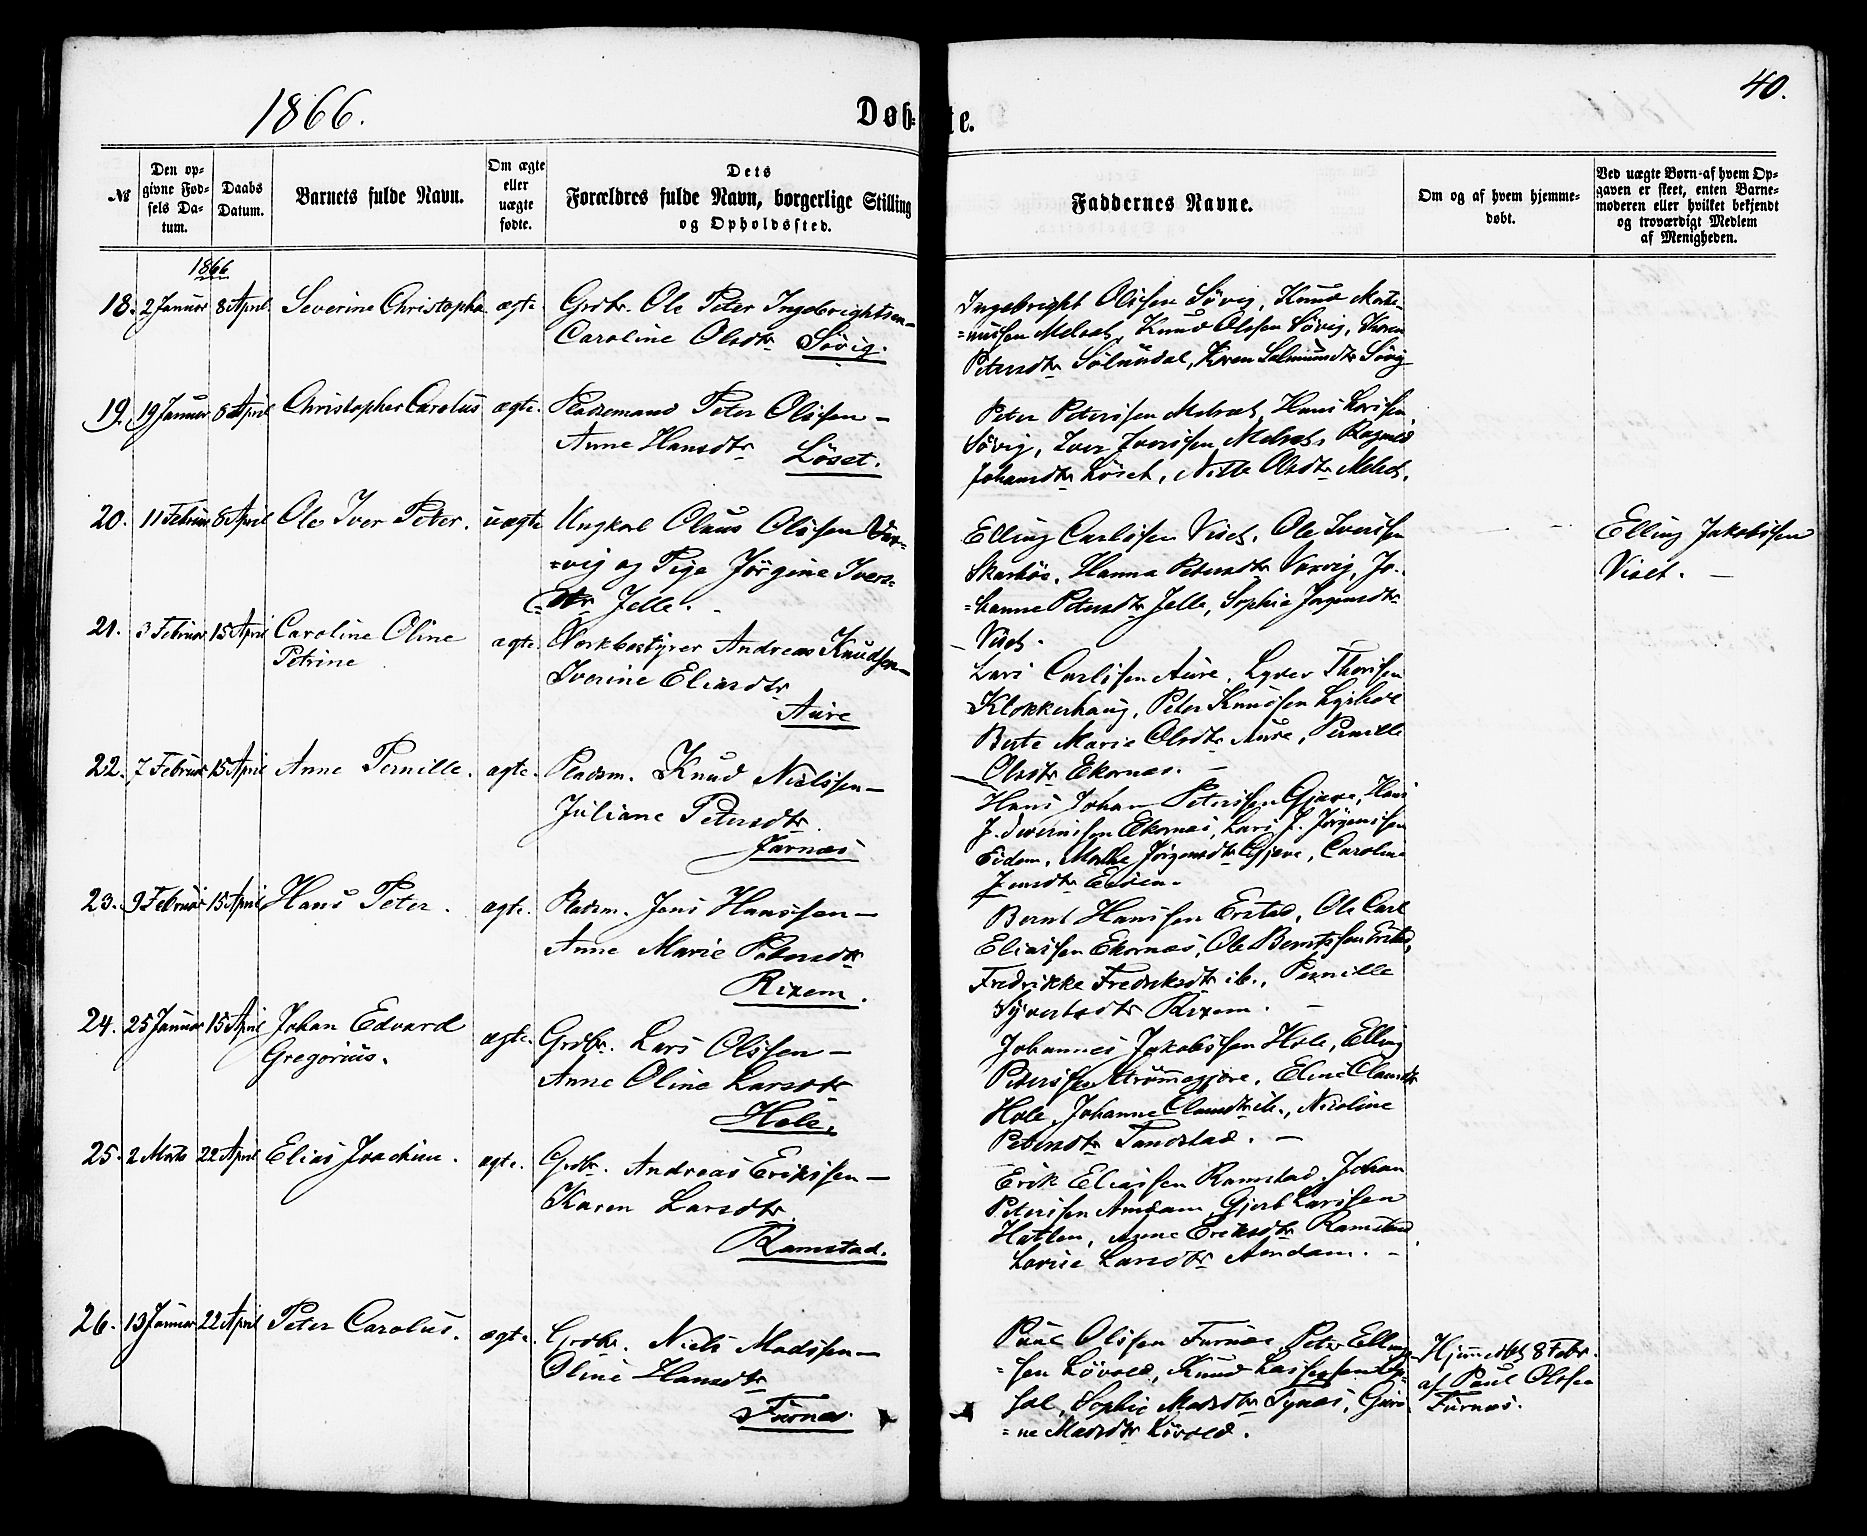 1866.
Døb-
te.
40.
№
Den op-
givne Fød-
sels Da-
tum.
Daabs
Datum.
Barnets fulde Navn.
Om ægte
eller
uægte
fødte.
Dets
Forældres fulde Navn, borgerlige Stilling
og Opholdssted.
Faddernes Navne.
Om og af hvem hjemme-
døbt.
Ved uægte Børn af hvem Op-
gaven er skeet, enten Barne-
moderen eller hvilket bekjendt
og troværdigt Medlem
af Menigheden.
1866
18. 2 Januar 8 April Severine Christopha ægte. Grdbr. Ole Peter Ingebrightsen –
Caroline Olsdtr Søvig.
Ingebright Olssen Søvig, Knud Marti-
=nussen Melset, Knud Olssen Søvig, Karen
Petersdtr Sølundal, Karen Salmundtr Søvig
19. 19 Januar 8 April Christopher Carolus ægte. Pladsmand Peter Olssen –
Anne Hansdtr Løset.
Peter Peterssen Melset, Hans Larssen
Søvig, Iver Iverssen Melset, Ragnild
Johansdtr Løset, Nille Olsdtr Melset.
20. 11 Februar 8 April Ole Iver Peter. uægte Ungkarl Olaus Olssen Var-
=vig og Pige Jørgine Ivers-
dtr Jelle. –
Elling Carlssen Viset, Ole Iverssen
Skarbøe, Hanna Petersdtr Varvig, Jo-
=hanne Petersdtr Jelle, Sophie Jørgensdtr
Viset.
Elling Jakobssen
Viset. –
21. 3 Februar 15 April Caroline Oline
Petrine
ægte. Værkbestyrer Andreas Knudsen –
Iverine Eliasdtr
Aure
Lars Carlssen Aure, Lyder Thorssen
Klokkerhaug, Peter Knudssen Lyshol
Berte Marie Olsdtr Aure, Pernille
Olsdtr Ekornæs. –
22. 7 Februar 15 April Anne Pernille. ægte. Pladsm. Knud Nielssen –
Juliane Petersdtr
Jarnæs
Hans Johan Peterssen Gjære, Hans
J. Severinssen Ekornæs, Lars J. Jørgenssen
Eidem, Marthe Jørgensdtr Gjære, Caroline
Jensdtr Eidem.
23. 9 Februar 15 April Hans Peter. ægte. Pladsm. Jens Hanssen –
Anne Marie Petersdtr
Rixem.
Bernt Hanssen Erstad, Ole Carl
Eliassen Ekornæs, Ole Berntssen Erstad,
Fredrikke Fredriksdtr ib., Pernille
Syvertsdtr Rixem. –
24. 25 Januar 15 April Johan Edvard
Gregorius.
ægte. Grdbr. Lars Olssen –
Anne Oline Larsdtr
Hole.
Johannes Jakobssen Hole, Elling
Peterssen Strømmegjære, Eline Claus dtr
Hole, Johanne Clausdtr ib., Nicoline
Petersdtr Tandstad. –
25. 2 Marts 22 April Elias Joachim. ægte. Grdbr. Andreas Erikssen –
Karen Larsdtr
Ramstad.
Erik Eliassen Ramstad, Johan
Peterssen Amdam, Gjert Larssen
Hatlen, Anne Eriksdtr Ramstad,
Lovise Larsdtr Amdam. –
26. 13 Januar 22 April Peter Carolus. ægte. Grdbr. Niels Madssen –
Oline Hansdtr
Furnæs.
Paul Olssen Furnæs, Peter Elling-
=sen Løvold, Knud Lassessen Ly-
=hol, Sophie Madsdtr Tynæs, Guro-
=ne Madsdtr Løvold.
Hjemmedøbt 8 Febr.
af Paul Olssen
Furnæs.